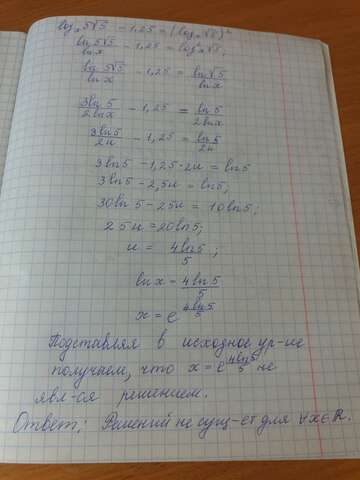 log_x 5√5 − 1,25 = (log_x √5)²
ln 5√5 / ln x − 1,25 = log_x² √5;
ln 5√5 / ln x − 1,25 = ln √5 / ln x
3ln 5 / 2ln x − 1,25 = ln 5 / 2ln x
3ln 5 / 2u − 1,25 = ln 5 / 2u
3ln 5 − 1,25·2u = ln 5
3ln 5 − 2,5u = ln 5;
30ln 5 − 25u = 10ln 5;
25u = 20ln 5;
u = 4ln 5 / 5;
ln x − 4ln 5 / 5
x = e^(4ln 5 / 5)
Подставляя в исходное ур-ие
получаем, что x = e^(4ln 5 / 5) не
явл-ся решением.
Ответ: Решений не сущ-ет для ∀x∈ℝ.